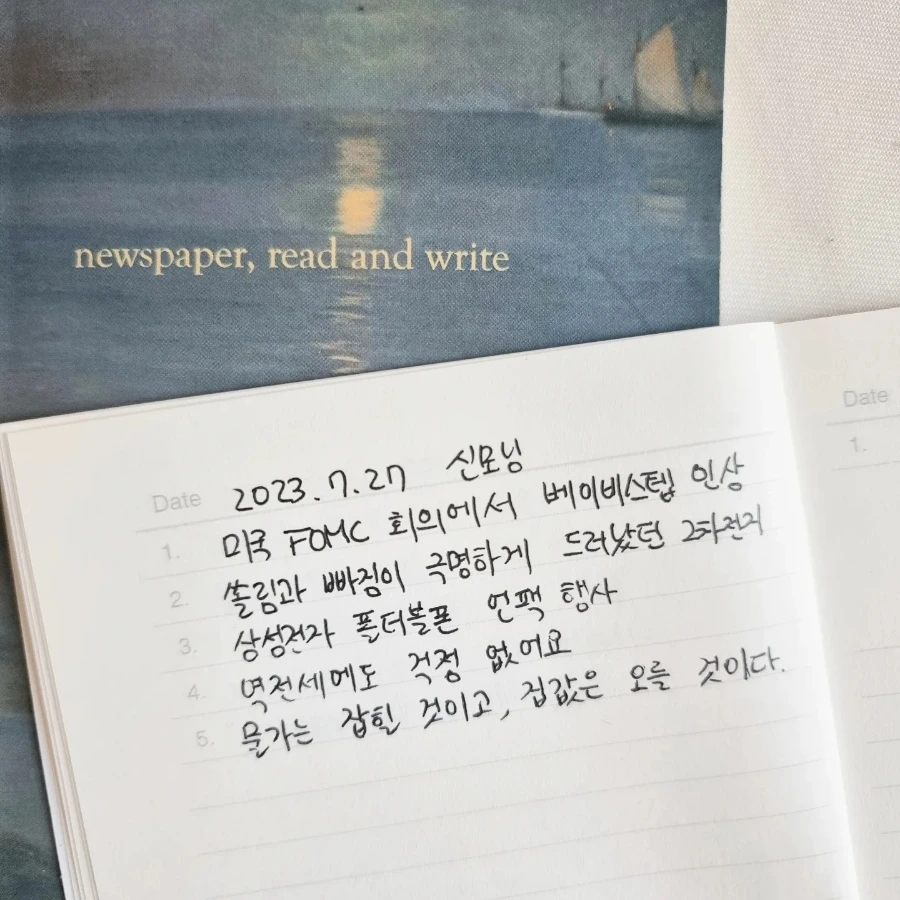 newspaper, read and write
Date 2023.7.27 신모닝
1. 미국 FOMC 회의에서 베이비스텝 인상
2. 쏠림과 빠짐이 극명하게 드러났던 2차전지
3. 삼성전자 폴더블폰 언팩 행사
4. 역전세에도 걱정 없어요
5. 물가는 잡힐 것이고, 집값은 오를 것이다.
Date
1.